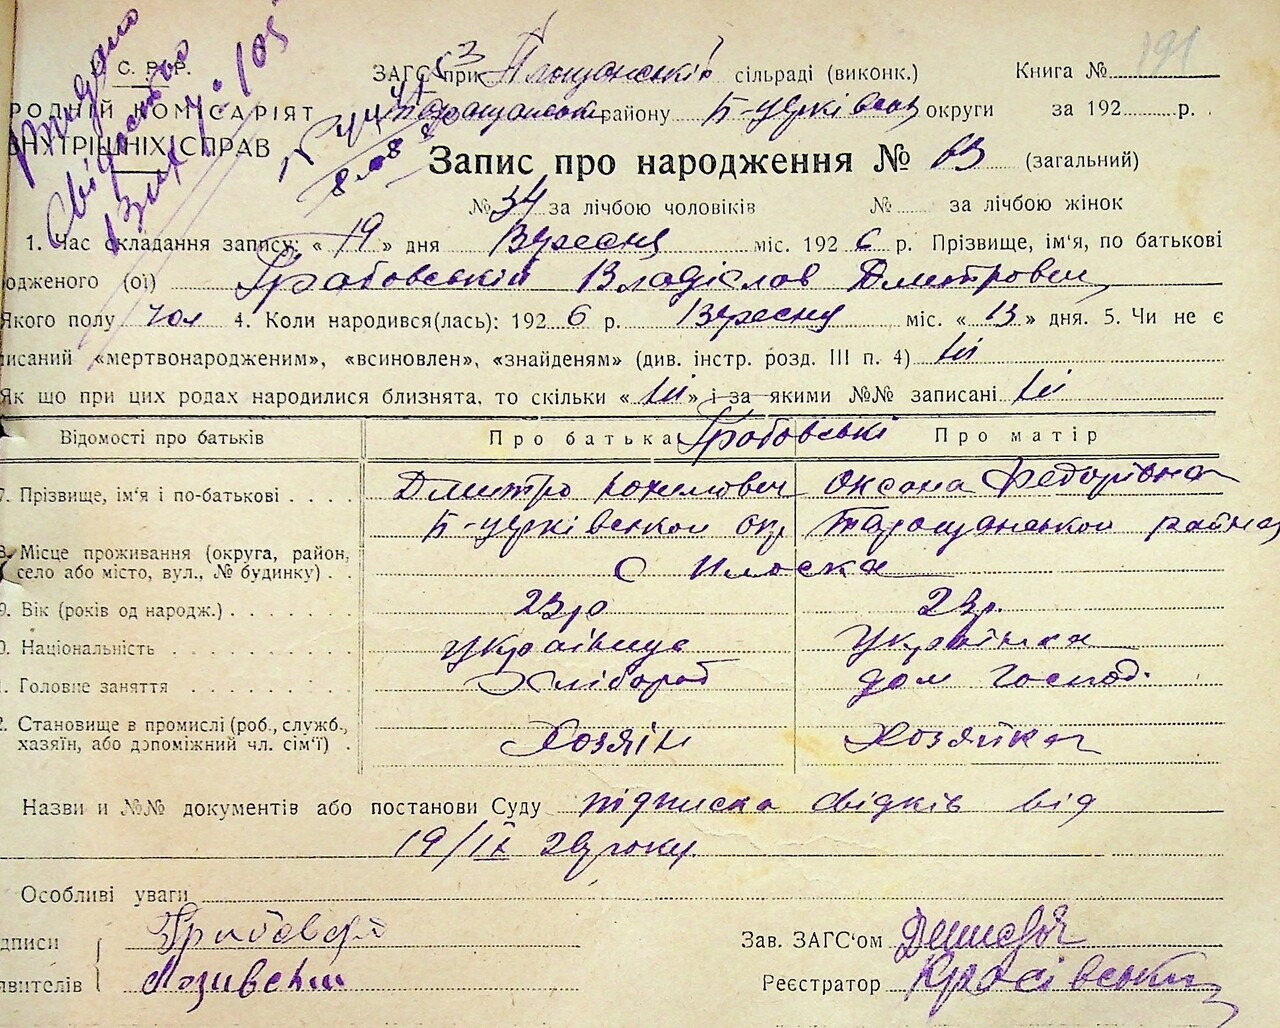 Видано
Свідоцтво
191
С. Р. Р. ЗАГС при Плосканській сільраді (виконк.) Книга №
РОДНІЙ КОМІСАРІЯТ Таращанськ району Б-Церківськ округи за 192 р.
ВНУТРІШНІХ СПРАВ
Запис про народження № 63 (загальний)
№ 34 за лічбою чоловіків № за лічбою жінок
1. Час складання запису: « 19 » дня Вересня міс. 1926 р. Прізвище, ім'я, по батькові
одженого (ої) Грабовській Владіслав Дмитрович
Якого полу чол 4. Коли народився(лась): 1926 р. Вересня міс. « 13 » дня. 5. Чи не є
писаний «мертвонародженим», «всиновлен», «знайденям» (див. інстр. розд. III п. 4) ні
Як що при цих родах народилися близнята, то скільки « ні » і за якими №№ записані ні
Відомості про батьків Про батька Грабовські Про матір
7. Прізвище, ім'я і по-батькові Дмитро Оксана Федорівна
Б-Церківської окр Таращанської района
8. Місце проживання (округа, район,
село або місто, вул., № будинку) с Плоска
9. Вік (років од народж.) 23 р 23 р.
0. Національність українце Українка
1. Головне заняття Хлібороб дом господ.
2. Становище в промислі (роб., служб.,
хазяїн, або допоміжний чл. сім'ї) Хозяін Хозяйка
Назви и №№ документів або постанови Суду підписка свідків від
19/IX 26 року.
Особливі уваги
дписи Грабовск Зав. ЗАГС'ом
явителів Реєстратор Красівський